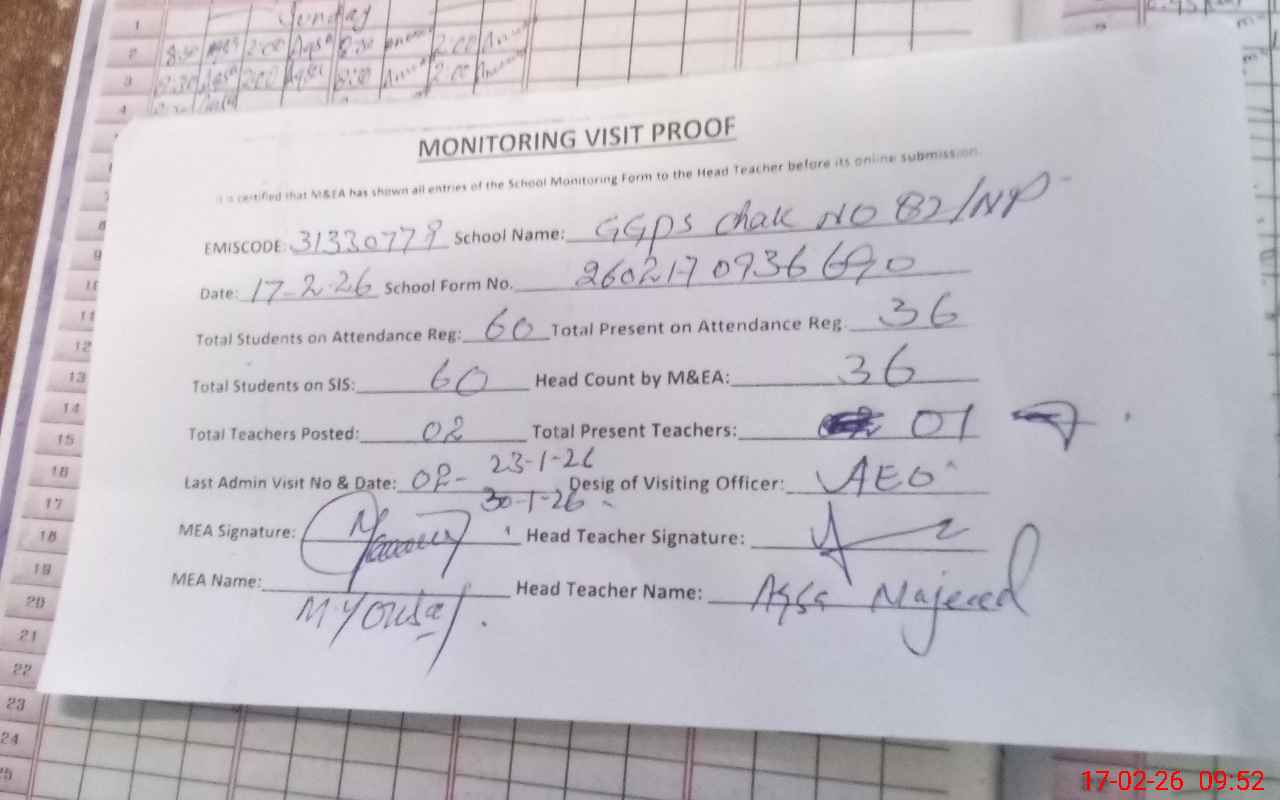 1 Sunday
2 8:30 Aqsa 2:00 Aqsa 8:30 2:00
3 8:30 Aqsa 2:00 Aqsa 8:30 2:00
4
MONITORING VISIT PROOF
It is certified that M&EA has shown all entries of the School Monitoring Form to the Head Teacher before its online submission.
EMISCODE: 31330779 School Name: GGPS Chak NO 82/NP
Date: 17-2-26 School Form No. 260217 0936690
Total Students on Attendance Reg: 60 Total Present on Attendance Reg 36
Total Students on SIS: 60 Head Count by M&EA: 36
Total Teachers Posted: 02 Total Present Teachers: 01
Last Admin Visit No & Date: 02- 23-1-26 Desig of Visiting Officer: AEO
30-1-26
MEA Signature: Head Teacher Signature:
MEA Name: M.Yousaf. Head Teacher Name: Aqsa Majeed
8
9
10
11
12
13
14
15
16
17
18
19
20
21
22
23
24
25
17-02-26 09:52